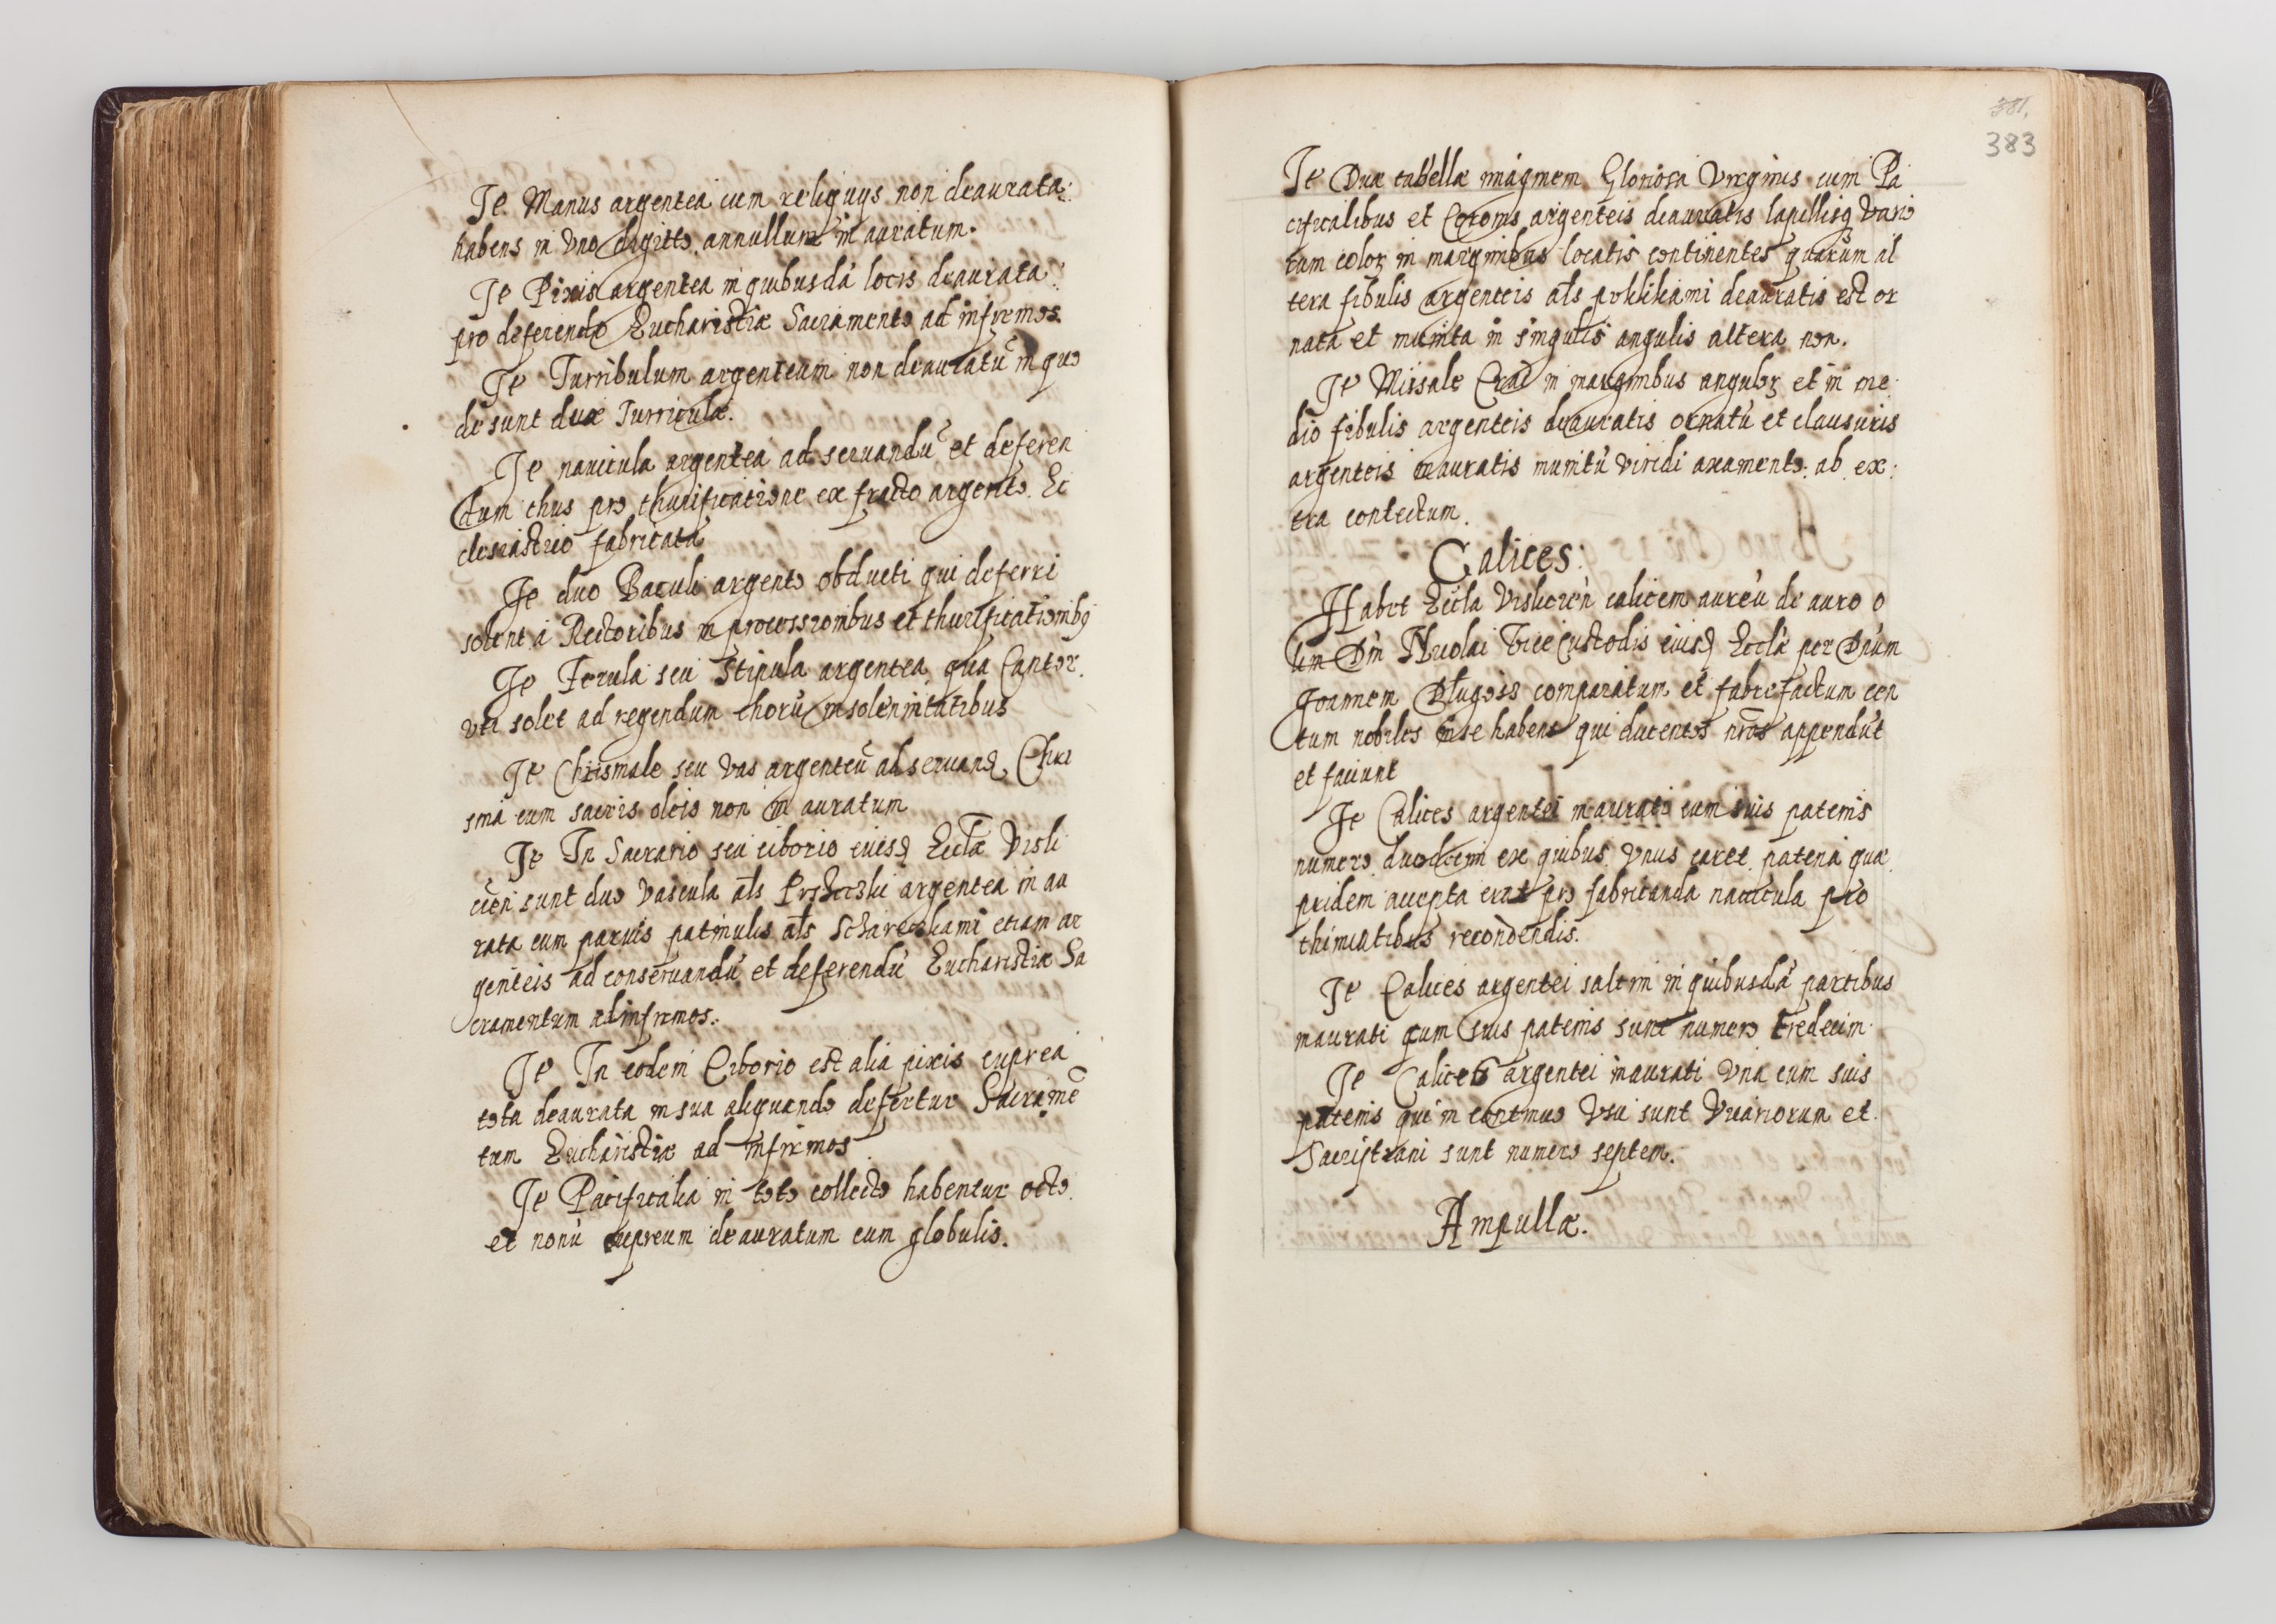 Ite Manus argentea cum reliquijs non deaurata:
habens in vno digitto annullum in auratum.
Ite Pixis argentea in quibusdã locis deaurata
pro deferendo Eucharistiæ Sacramento ad infirmos.
Ite Turribulum argenteum non deauratũ in quo
de sunt duæ Turriculæ.
Ite nauicula argentea ad seruandũ et deferen
dum thus pro thurificatione ex fracto argento Ec
clesiastico fabricata
Ite duo Baculi argento obducti qui deferri
solent à Rectoribus in processionibus et thurificationibq
Ite Ferula seu Stipula argentea qua Cantor
vti solet ad regendum chorũ in solennitatibus
Ite Chrismale seu vas argenteũ ad seruand Chri
sma cum sacris oleis non in auratum
Ite In Sacrario seu ciborio eiusd Eccłæ Visli
cien sunt duo vascula ałs argentea in au
rata cum paruis patinulis ałs etiam ar
genteis ad conseruandũ et deferendũ Eucharistiæ Sa
cramentum ad infirmos:
Ite In eodem Ciborio est alia pixis cuprea
tota deaurata in sua aliquando defertur Sacramẽ
tum Eucharistiæ ad infirmos
Ite Pacificalia in toto collecto habentur octo
et nonũ cupreum deauratum cum globulis.
381,
383
Ite Duæ tabellæ imaginem Gloriosa Virginis cum Pa
cificalibus et Coronis argenteis deauratis lapillisq vario
rum coloɀ in marginibus locatis continentes quarum al
tera fibulis argenteis ałs deauratis est or
nata et munita in singulis angulis altera non.
Ite Missale Crac in marginibus anguloɀ et in me
dio fibulis argenteis deauratis ornatũ et clausuris
argenteis inauratis munitũ viridi axamento ab ex:
tra contectum.
Calices:
Habet Eccła Vislicien calicem aureũ de auro o
lim Dñi Nicolai Vice Custodis eiusd Eccłæ per Dñum
Joannem Długoss comparatum et fabrefactum cen
tum nobiles in se habens qui ducentos appendũt
et faciunt
Ite Calices argentei inaurati cum suis patenis
numero duodecim ex quibus vnus caret patena quæ
pridem accepta erat pro fabricanda nauicula pro
thimiatibus recondendis.
Ite Calices argentei saltim in quibusdã partibus
inaurati cum suis patenis sunt numero tredecim.
Ite Calices argentei inaurati vna cum suis
patenis qui in continuo vsu sunt Vicariorum et
Sacristiani sunt numero septem.
Ampullæ.